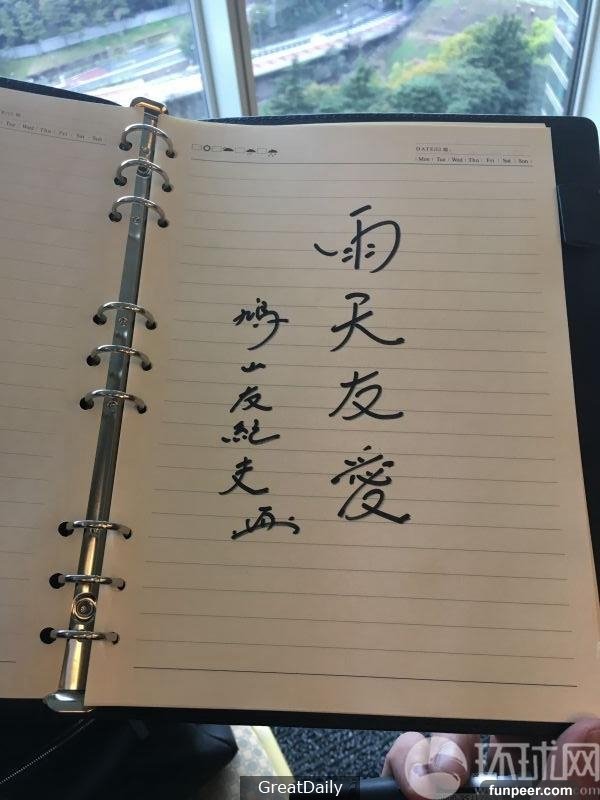 Tue / Wed / Thu / Fri / Sat / Sun
DATE/日期:
Mon / Tue / Wed / Thu / Fri / Sat / Sun
雨天友愛
鳩山友紀夫
环球网
GreatDaily
funpeer.com